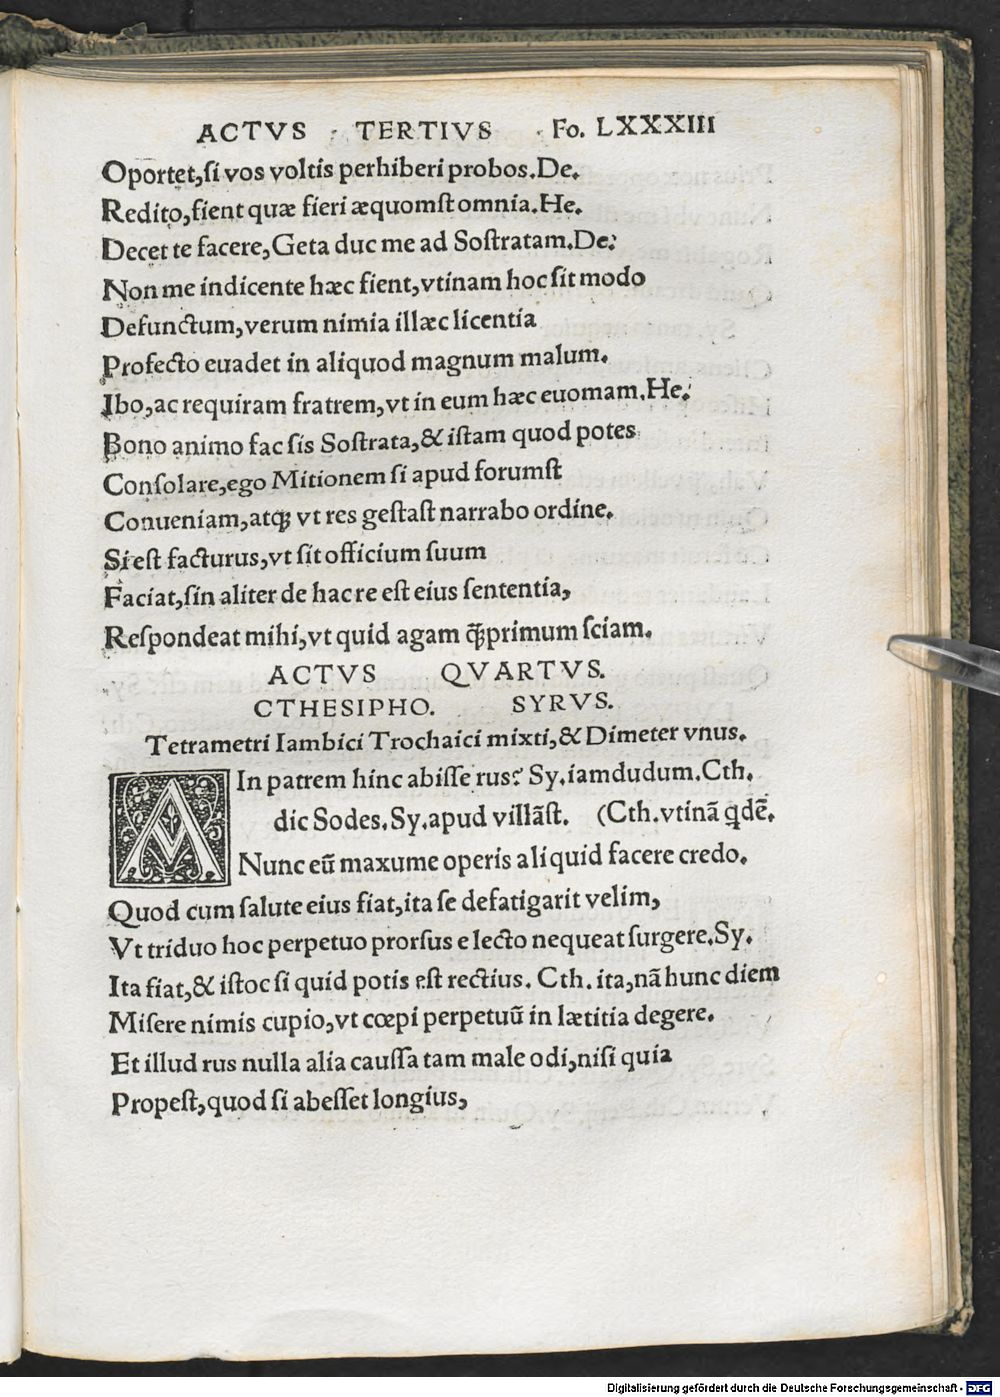 ACTVS TERTIVS Fo. LXXXIII
Oportet,ſi vos voltis perhiberi probos.De.
Redito,fient quæ fieri æquomſt omnia.He.
Decet te facere,Geta duc me ad Soſtratam.De.
Non me indicente hæc fient,vtinam hoc ſit modo
Defunctum,verum nimia illæc licentia
Profecto euadet in aliquod magnum malum.
Ibo,ac requiram fratrem,vt in eum hæc euomam.He.
Bono animo fac ſis Soſtrata,& iſtam quod potes
Conſolare,ego Mitionem ſi apud forumſt
Conueniam,atq; vt res geſtaſt narrabo ordine.
Si eſt facturus,vt ſit officium ſuum
Faciat,ſin aliter de hac re eſt eius ſententia,
Reſpondeat mihi,vt quid agam q̃primum ſciam.
ACTVS QVARTVS.
CTHESIPHO. SYRVS.
Tetrametri Iambici Trochaici mixti,& Dimeter vnus.
AIn patrem hinc abiſſe rus? Sy.iamdudum.Cth.
dic Sodes.Sy.apud villãſt. (Cth.vtinã qdẽ.
Nunc eũ maxume operis aliquid facere credo.
Quod cum ſalute eius fiat,ita ſe defatigarit velim,
Vt triduo hoc perpetuo prorſus e lecto nequeat ſurgere.Sy.
Ita fiat,& iſtoc ſi quid potis eſt rectius. Cth. ita,nã hunc diem
Miſere nimis cupio,vt cœpi perpetuũ in lætitia degere.
Et illud rus nulla alia cauſſa tam male odi,niſi quia
Propeſt,quod ſi abeſſet longius,
Digitalisierung gefördert durch die Deutsche Forschungsgemeinschaft - DFG